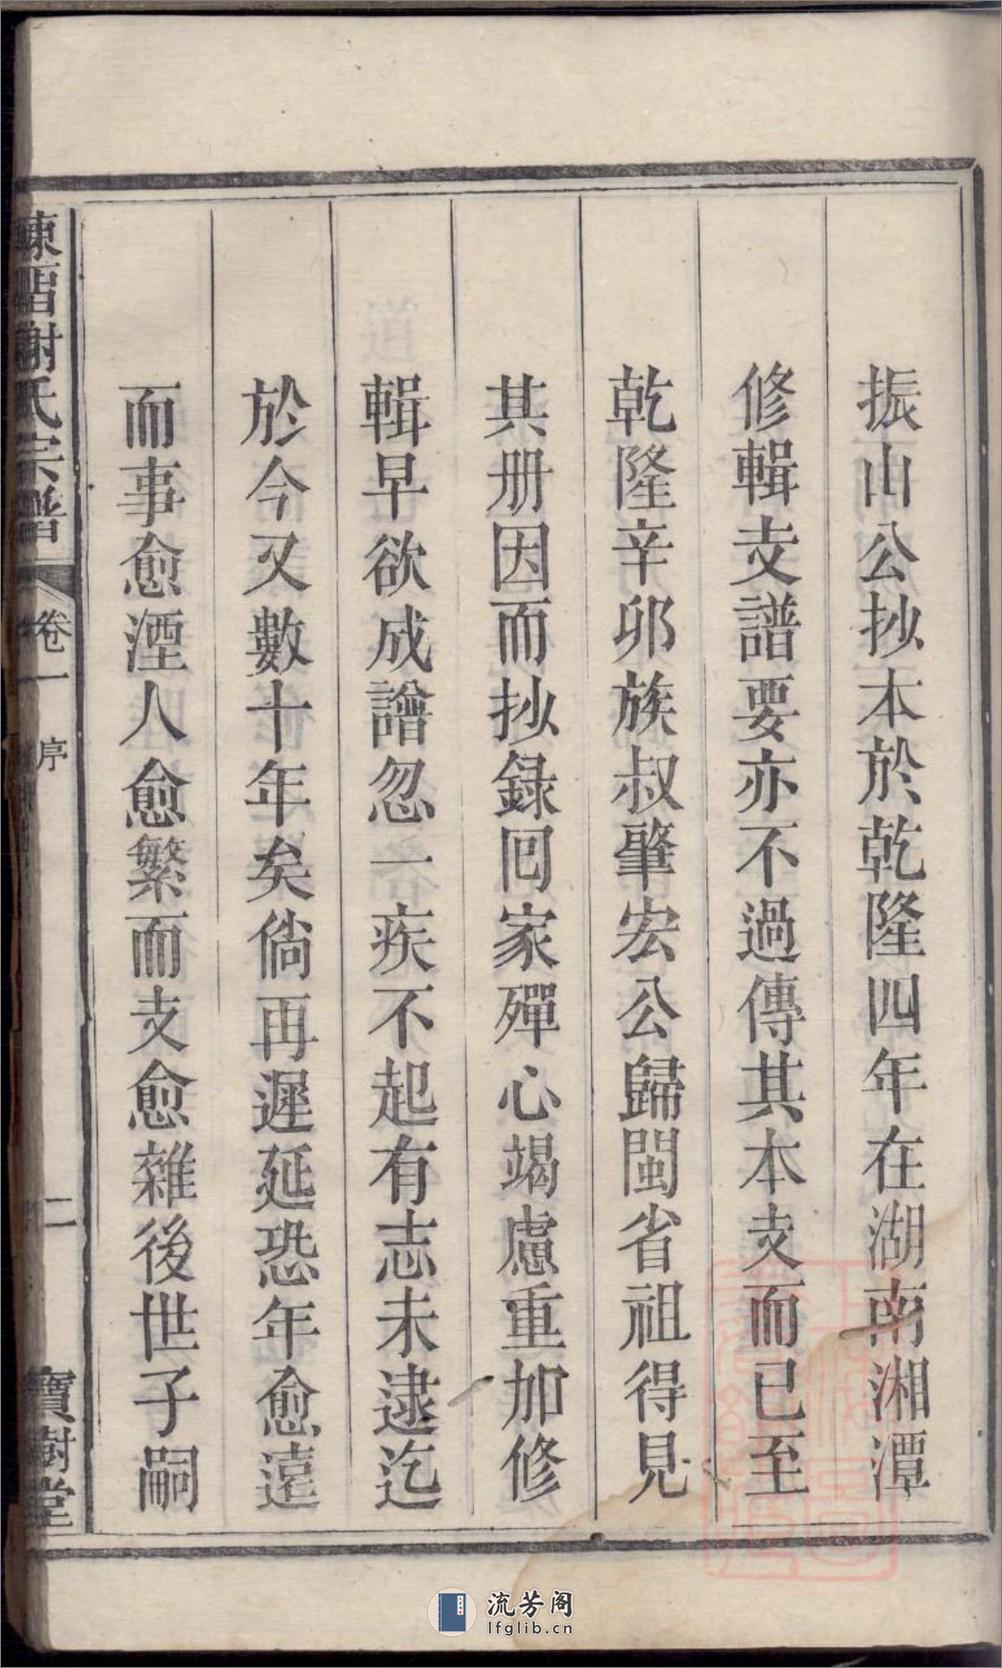 振山公抄本於乾隆四年在湖南湘潭
修輯支譜要亦不過傳其本支而已至
乾隆辛卯族叔肇宏公歸閩省祖得見
其册因而抄錄囘家殫心竭慮重加修
輯早欲成譜忽一疾不起有志未逮迄
於今又數十年矣倘再遲延恐年愈遠
而事愈湮人愈繁而支愈雜後世子嗣
謝氏宗譜
卷一
序
二
寶樹堂
流芳阁
lfglib.cn